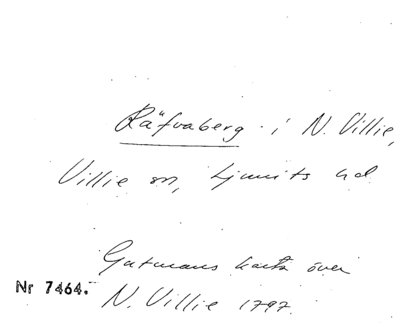 Räfvaberg i N. Villie,
Villie sn, Ljunits hd
Gutmans karta över
Nr 7464.
N. Villie 1797.